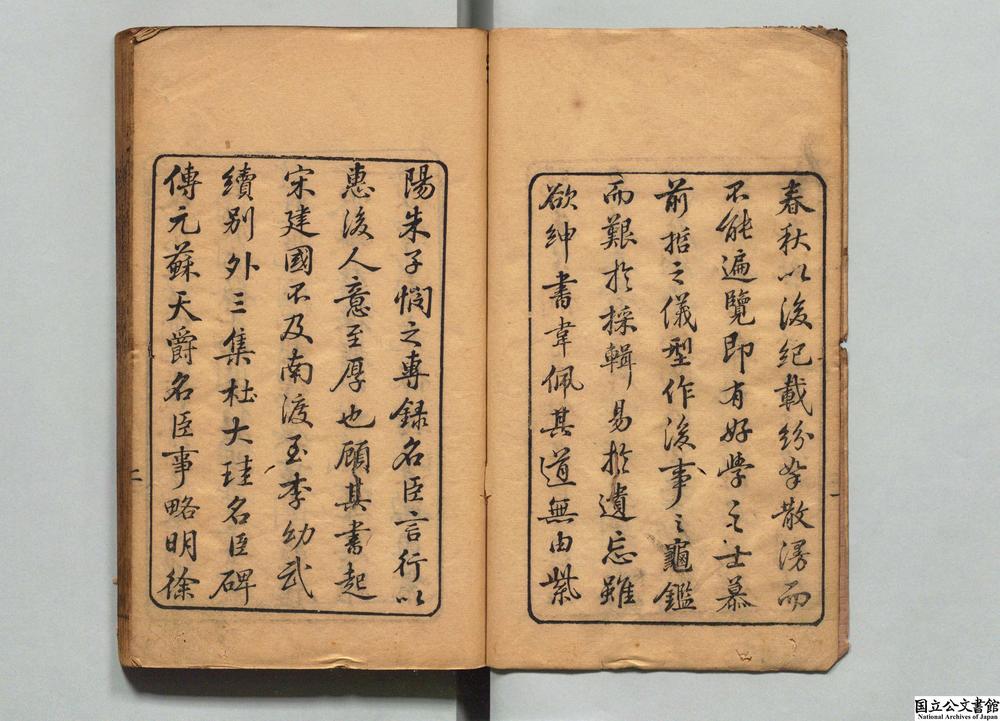 春秋以後紀載紛挐散漫而
不能遍覽即有好學之士慕
前哲之儀型作後事之龜鑑
而艱於採輯易於遺忘雖
欲紳書韋佩其道無由紫
陽朱子憫之專錄名臣言行以
惠後人意至厚也顧其書起
宋建國不及南渡至李幼武
續別外三集杜大珪名臣碑
傳元蘇天爵名臣事略明徐
一
二
国立公文書館
National Archives of Japan